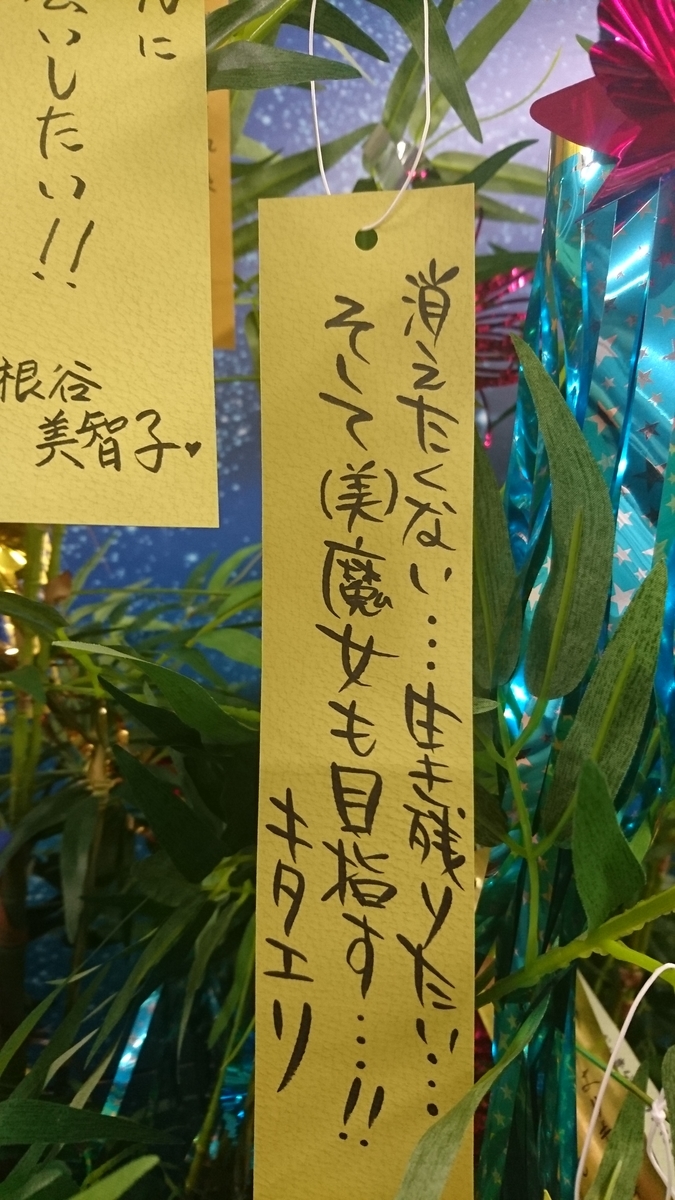 消えたくない…生き残りたい…
そして(美)魔女も目指す…!!
キタエリ
に
いしたい!!
根谷
美智子♥